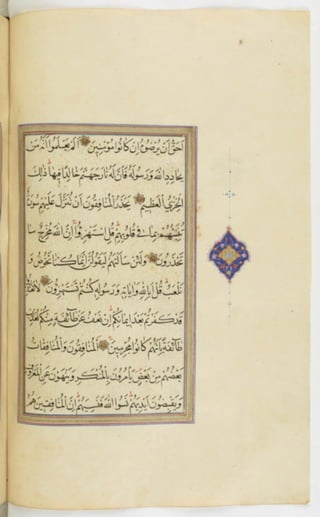 اَحَقُّ اَنْ يُرْضُوهُ اِنْ كَانُوا مُؤْمِنِينَ اَلَمْ يَعْلَمُوا اَنَّهُ مَنْ
يُحَادِدِ اللهَ وَرَسُولَهُ فَاَنَّ لَهُ نَارَ جَهَنَّمَ خَالِدًا فِيهَا ذٰلِكَ
الْخِزْيُ الْعَظِيمُ يَحْذَرُ الْمُنَافِقُونَ اَنْ تُنَزَّلَ عَلَيْهِمْ سُورَةٌ
تُنَبِّئُهُمْ بِمَا فِي قُلُوبِهِمْ قُلِ اسْتَهْزِؤُا اِنَّ اللهَ مُخْرِجٌ مَا
تَحْذَرُونَ وَلَئِنْ سَاَلْتَهُمْ لَيَقُولُنَّ اِنَّمَا كُنَّا نَخُوضُ وَ
نَلْعَبُ قُلْ اَبِاللهِ وَاٰيَاتِهِ وَرَسُولِهِ كُنْتُمْ تَسْتَهْزِؤُنَ لَا تَعْتَذِرُوا
قَدْ كَفَرْتُمْ بَعْدَ اِيمَانِكُمْ اِنْ نَعْفُ عَنْ طَائِفَةٍ مِنْكُمْ نُعَذِّبْ
طَائِفَةً بِاَنَّهُمْ كَانُوا مُجْرِمِينَ اَلْمُنَافِقُونَ وَالْمُنَافِقَاتُ
بَعْضُهُمْ مِنْ بَعْضٍ يَاْمُرُونَ بِالْمُنْكَرِ وَيَنْهَوْنَ عَنِ الْمَعْرُوفِ
وَيَقْبِضُونَ اَيْدِيَهُمْ نَسُوا اللهَ فَنَسِيَهُمْ اِنَّ الْمُنَافِقِينَ هُمُ